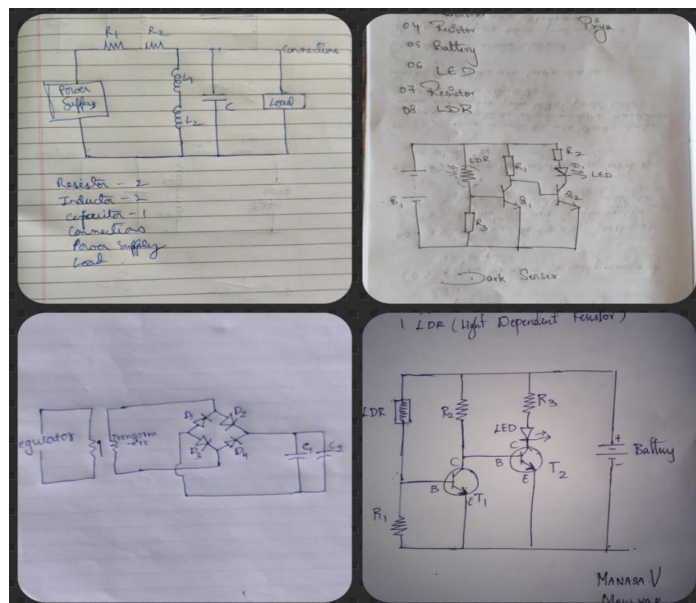 R1 R2
connections
Power
Supply
L1
L2
C
Load
Resistor - 2
Inductor - 2
capacitor - 1
Connections
Power Supply
Load
Priya
04 Resistor
05 Battery
06 LED
07 Resistor
08 LDR
LDR
R1
R2
D1
LED
B1
Q1
Q2
R3
Dark Sensor
D1 D2
D3 D4
egulator
C1
1 LDR (Light Dependent resistor)
LDR
R2
R3
LED
C
B
E
T2
C
B
E
T1
R1
+
Battery
-
MANASA V